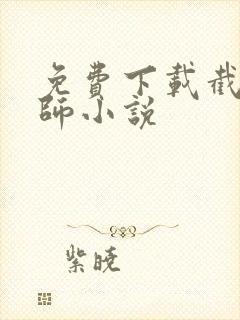 免費下載截
師小説
紫曉